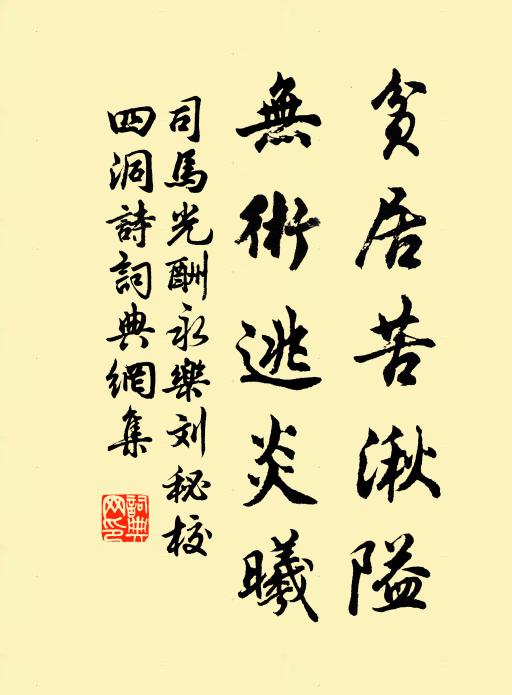 貧居苦湫隘
無術逃炎曦
司馬光酬永樂刘秘校
四洞詩詞典網集
詞典網印